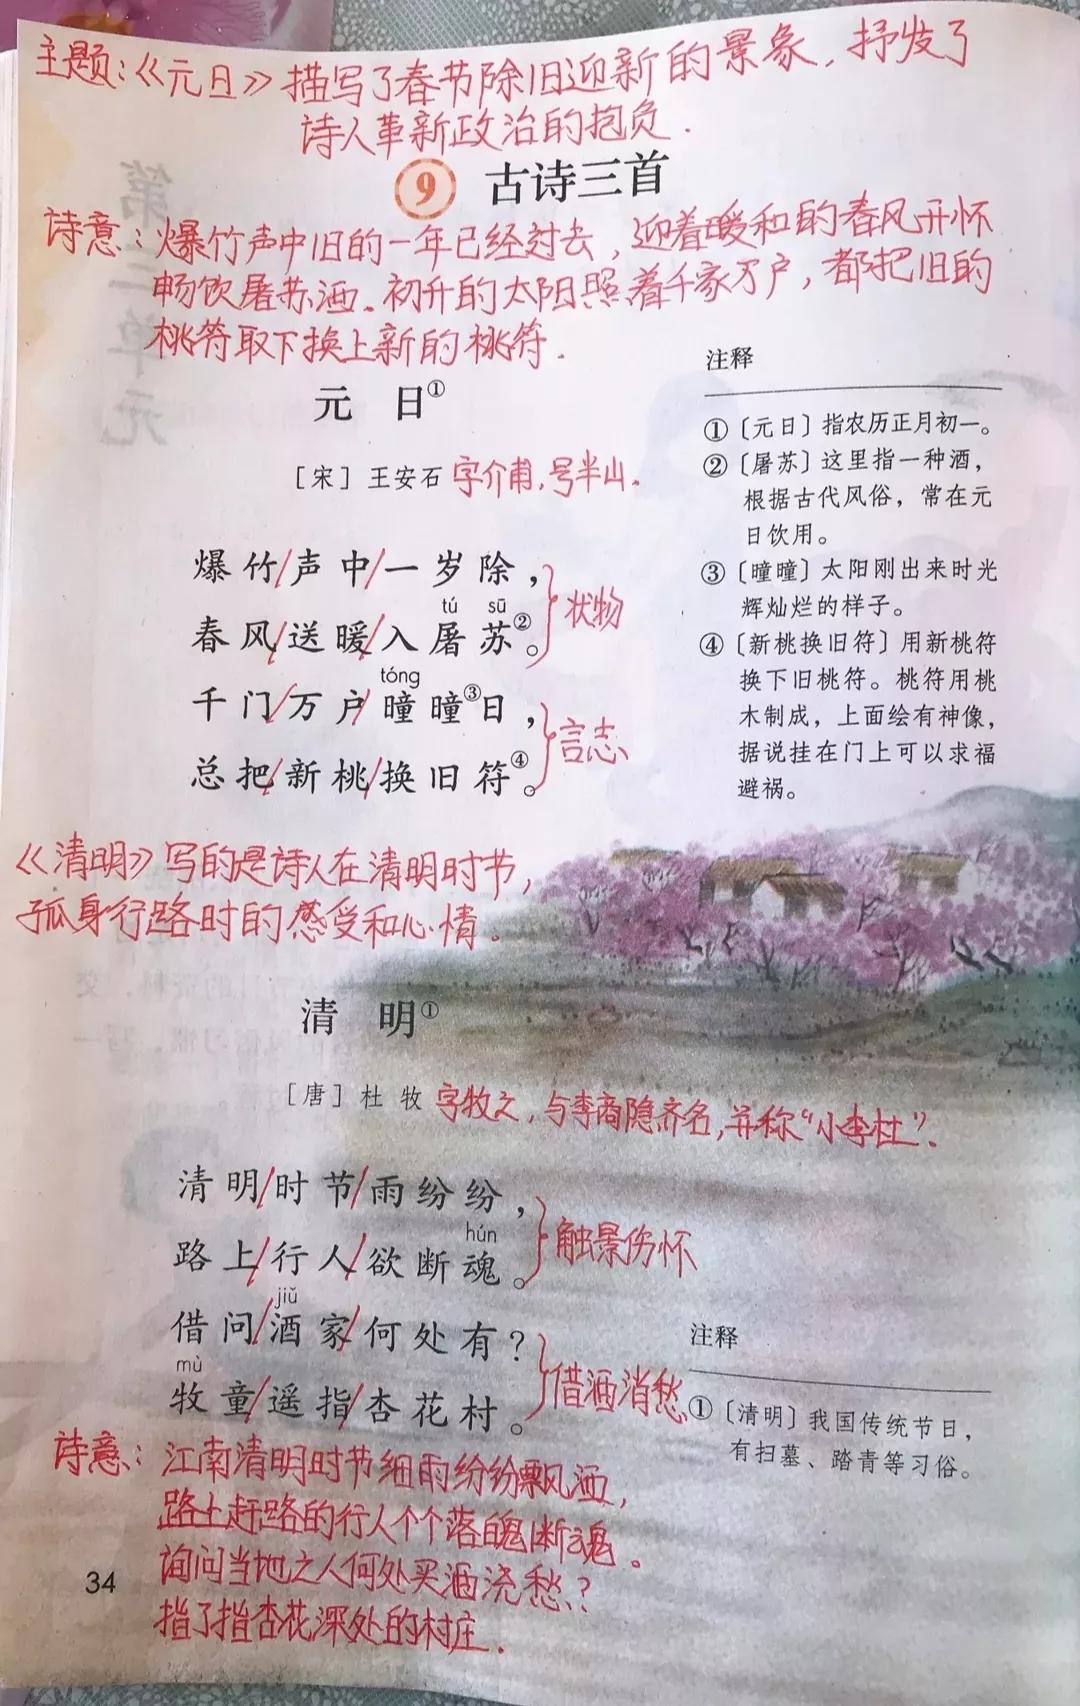 主题:《元日》描写了春节除旧迎新的景象,抒发了
诗人革新政治的抱负.
9 古诗三首
诗意:爆竹声中旧的一年已经过去,迎着暖和的春风开怀
畅饮屠苏酒.初升的太阳照着千家万户,都把旧的
桃符取下换上新的桃符.
元 日①
[宋] 王安石 字介甫,号半山.
爆竹/声中/一岁除,
tú sū
春风/送暖/入屠苏②。
状物
tóng
千门/万户/曈曈③日,
总把/新桃/换旧符④。
言志
注释
①〔元日〕指农历正月初一。
②〔屠苏〕这里指一种酒,
根据古代风俗,常在元
日饮用。
③〔曈曈〕太阳刚出来时光
辉灿烂的样子。
④〔新桃换旧符〕用新桃符
换下旧桃符。桃符用桃
木制成,上面绘有神像,
据说挂在门上可以求福
避祸。
《清明》写的是诗人在清明时节,
孤身行路时的感受和心情.
清 明①
[唐] 杜 牧 字牧之,与李商隐齐名,并称“小李杜”.
清明/时节/雨纷纷,
hún
路上/行人/欲断魂。
触景伤怀
jiǔ
借问/酒家/何处有?
mù
牧童/遥指/杏花村。
借酒消愁
注释
①〔清明〕我国传统节日,
有扫墓、踏青等习俗。
诗意:江南清明时节细雨纷纷飘洒,
路上赶路的行人个个落魄断魂。
询问当地之人何处买酒浇愁?
指了指杏花深处的村庄.
34